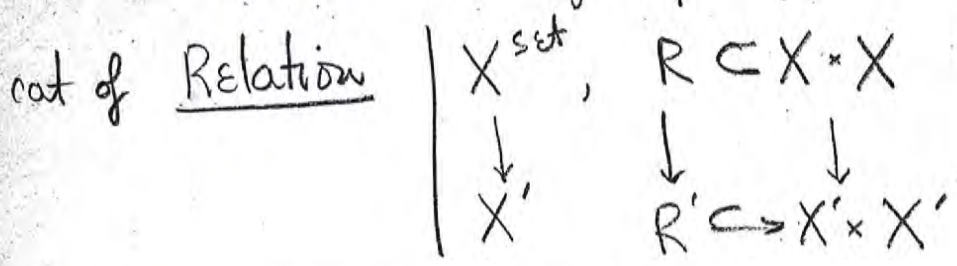 cat of Relation | X^set, R ⊂ X × X
↓ ↓ ↓
X' R' ↪ X' × X'